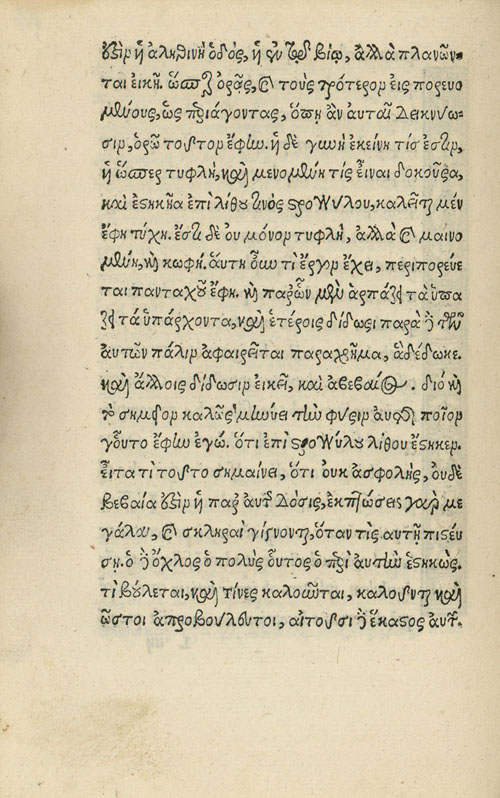 ἐςὶν ἡ ἀληθινὴ ὁδός, ἡ ἐν τῷ βίῳ, ἀλλὰ πλανῶν-
ται εἰκῆ. ὥσπερ ὁρᾷς, καὶ τοὺς πρότερον εἰσπορευο
μένους, ὡς περιάγοντας, ὅπη ἂν αὐταὶ δεικνύω-
σιν, ὁρῶ τοῦτον ἔφην. ἡ δὲ γυνὴ ἐκείνη τίς ἐστιν,
ἡ ὥσπερ τυφλὴ, καὶ μαινομένη τὶς εἶναι δοκοῦσα,
καὶ ἑςηκῆα ἐπὶ λίθου τινὸς ςρογγύλου, καλεῖται μέν
ἔφη τύχη. ἔςι δὲ οὐ μόνον τυφλὴ, ἀλλὰ καὶ μαινο
μένη, καὶ κωφή. αὕτη οὖν τί ἔργον ἔχει, περιπορεύε
ται πανταχοῦ ἔφη. καὶ παρ' ὧν μὲν ἁρπάζει τὰ ὑπα
ζει τά ὑπάρχοντα, καὶ ἑτέροις δίδωσι παρὰ δὲ τῶν
αὐτῶν πάλιν ἀφαιρεῖται παραχρῆμα, ἃ δέδωκε.
καὶ ἄλλοις δίδωσιν εἰκεῖ, καὶ ἀβεβαίως. διὸ καὶ
τὸ σημεῖον καλῶς μηνύει τὴν φύσιν αὐτῆς ποῖον
τοῦτο ἔφην ἐγώ. ὅτι ἐπὶ ςρογγύλου λίθου ἕςηκεν.
εἶτα τί τοῦτο σημαίνει, ὅτι οὐκ ἀσφαλὴς, οὐδὲ
βεβαία ἐςὶν ἡ παρ' αὐτῆς δόσις, ἐκπτώσεις γὰρ με
γάλαι, καὶ σκληραὶ γίγνονται, ὅταν τὶς αὐτῇ πιςεύ
ση. ὁ δὲ ὄχλος ὁ πολὺς οὗτος ὁ περὶ αὐτὴν ἑςηκώς.
τί βούλεται, καὶ τίνες καλοῦνται, καλοῦνται μὲν
οὗτοι ἀπροβούλευτοι, αἰτοῦσι δὲ ἕκαςος αὐτῶν